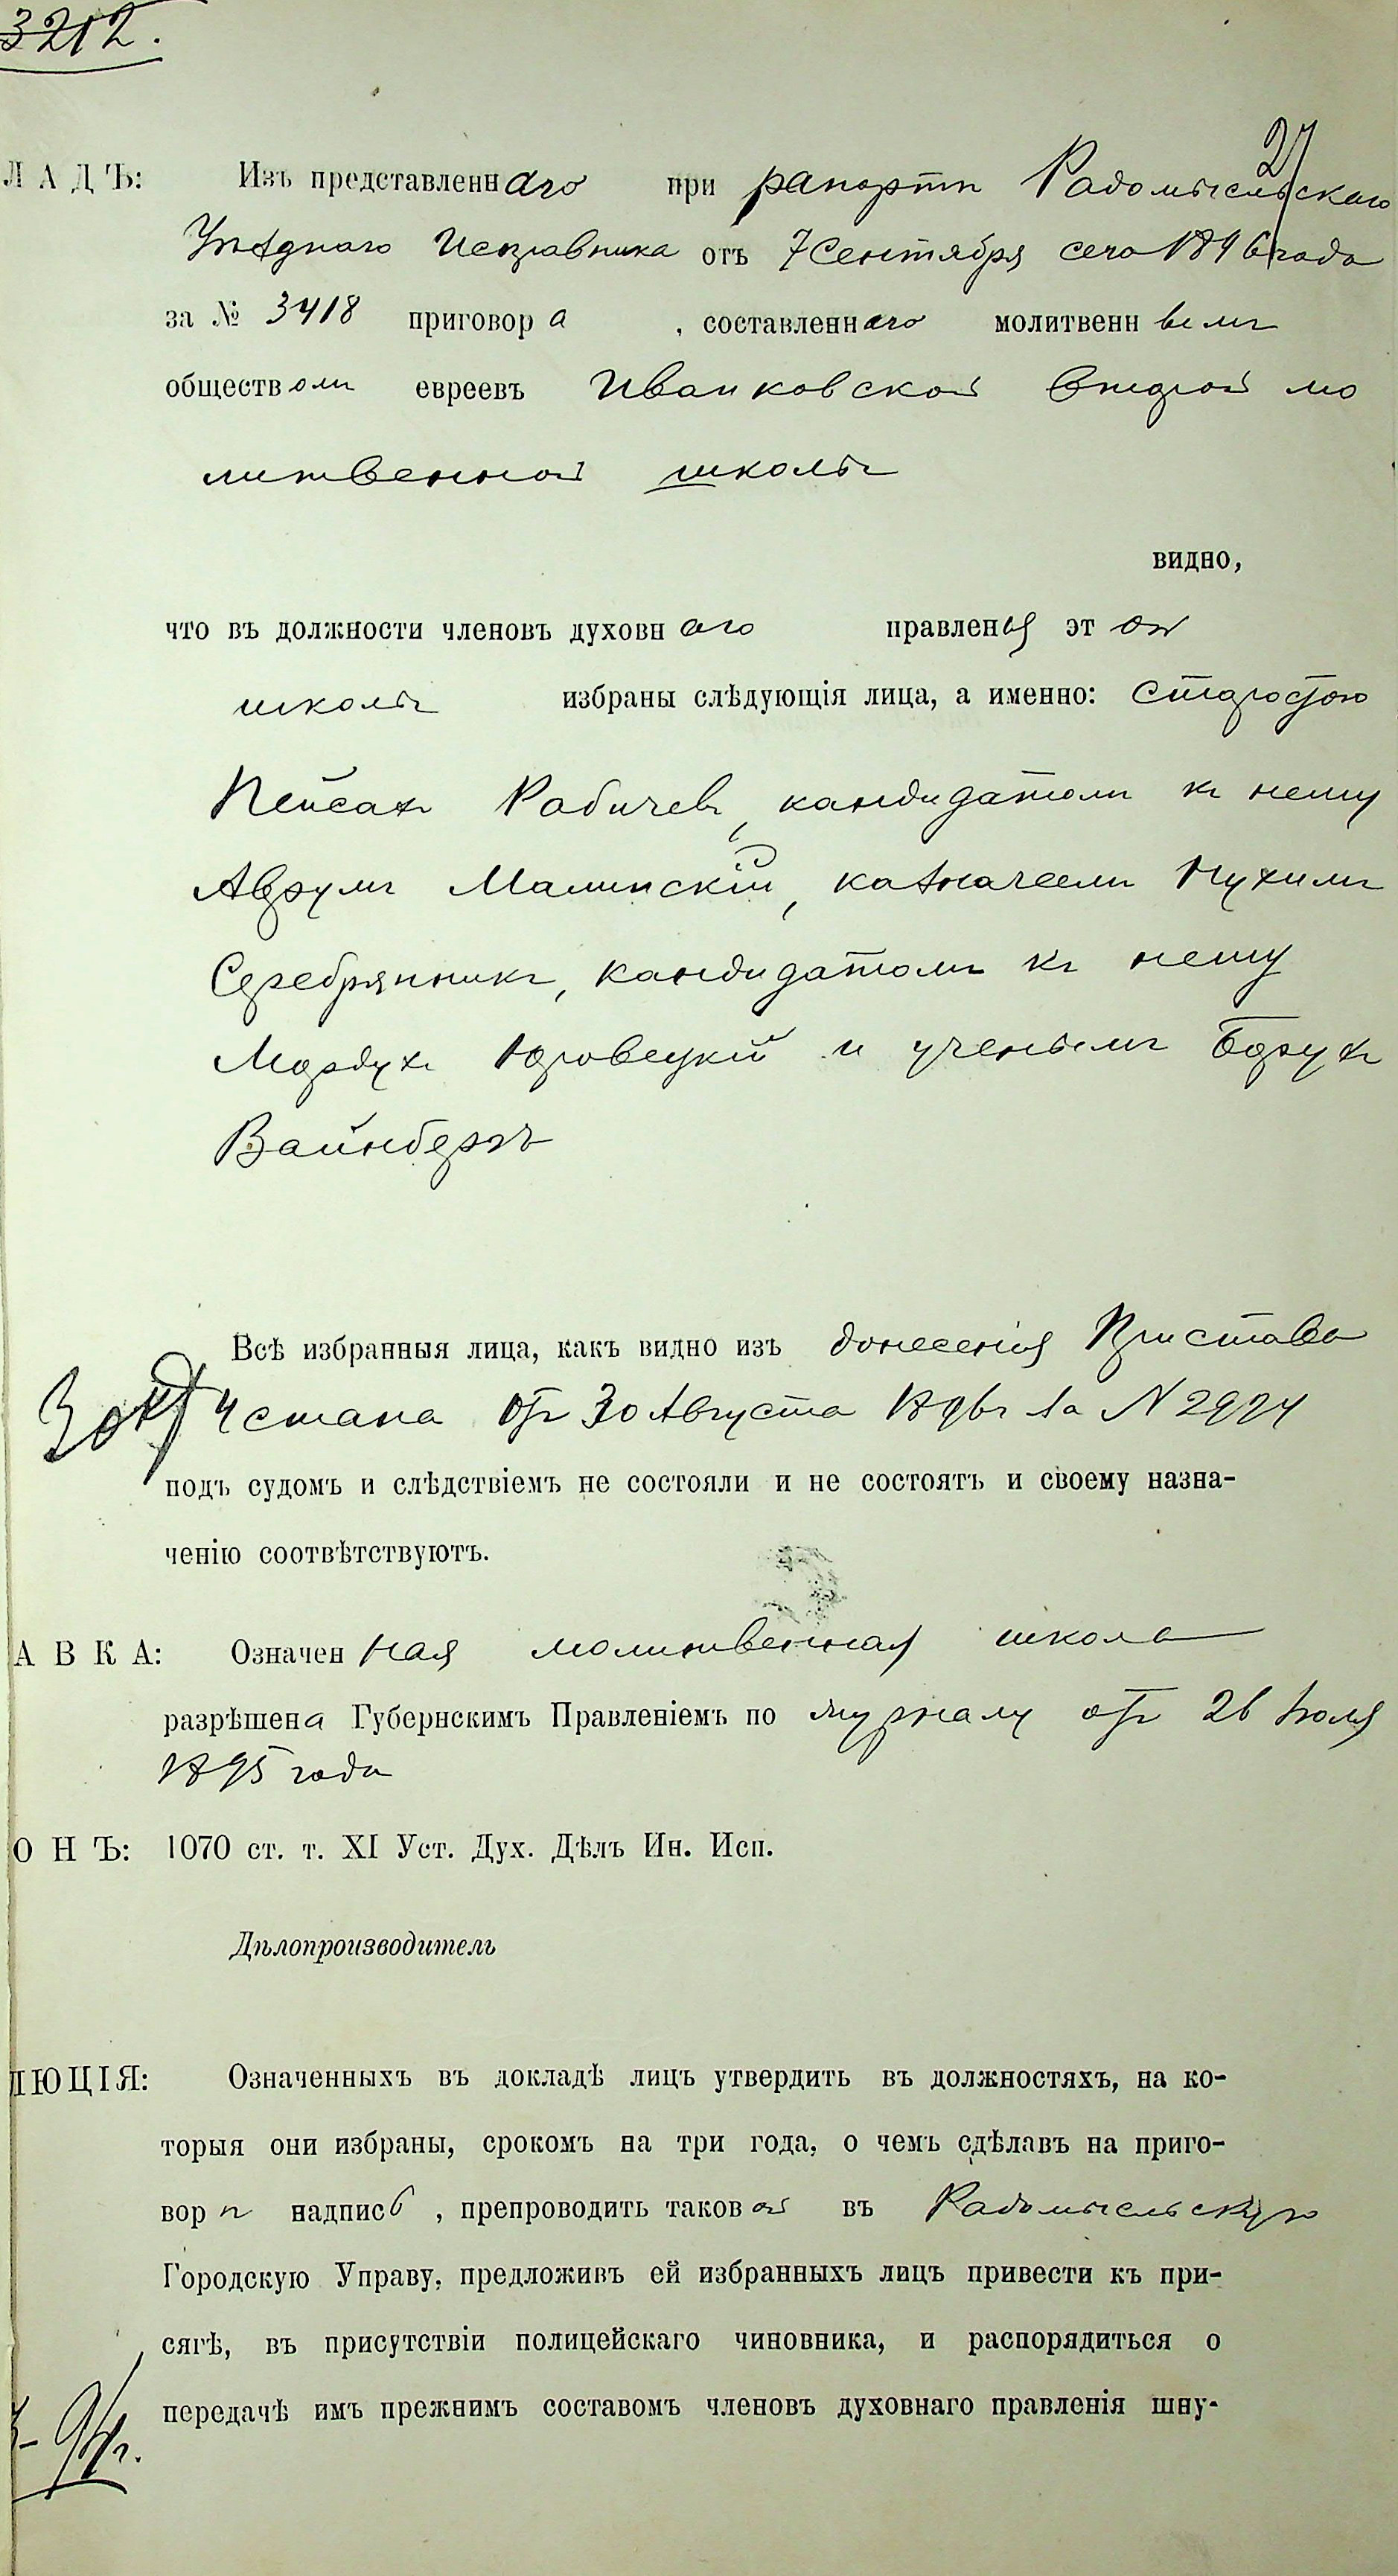 3212.
27
ЛАДЪ: Изъ представленнаго при рапортѣ Радомысльскаго
Уѣзднаго Исправника отъ 7 Сентября сего 1896 года
за № 3418 приговора, составленнаго молитвеннымъ
обществомъ евреевъ Иванковской второй мо
литвенной школы
видно,
что въ должности членовъ духовнаго правленія этой
школы избраны слѣдующія лица, а именно: старостою
Пейсахъ Рабичевъ, кандидатомъ къ нему
Аврумъ Малинскій, казначеемъ Нухимъ
Серебрянникъ, кандидатомъ къ нему
Мордухъ Юровецкій и ученымъ Борухъ
Вайнбергъ
Всѣ избранныя лица, какъ видно изъ донесенія Пристава
4 стана отъ 30 Августа 1896 г за N 2994
подъ судомъ и слѣдствіемъ не состояли и не состоятъ и своему назна-
ченію соотвѣтствуютъ.
АВКА: Означенная молитвенная школа
разрѣшена Губернскимъ Правленіемъ по журналу отъ 26 Іюля
1895 года
ОНЪ: 1070 ст. т. XI Уст. Дух. Дѣлъ Ин. Исп.
Дѣлопроизводитель
ЛЮЦІЯ: Означенныхъ въ докладѣ лицъ утвердить въ должностяхъ, на ко-
торыя они избраны, срокомъ на три года, о чемъ сдѣлавъ на приго-
ворѣ надпись, препроводить таковой въ Радомысльскую
Городскую Управу, предложивъ ей избранныхъ лицъ привести къ при-
сягѣ, въ присутствіи полицейскаго чиновника, и распорядиться о
передачѣ имъ прежнимъ составомъ членовъ духовнаго правленія шну-